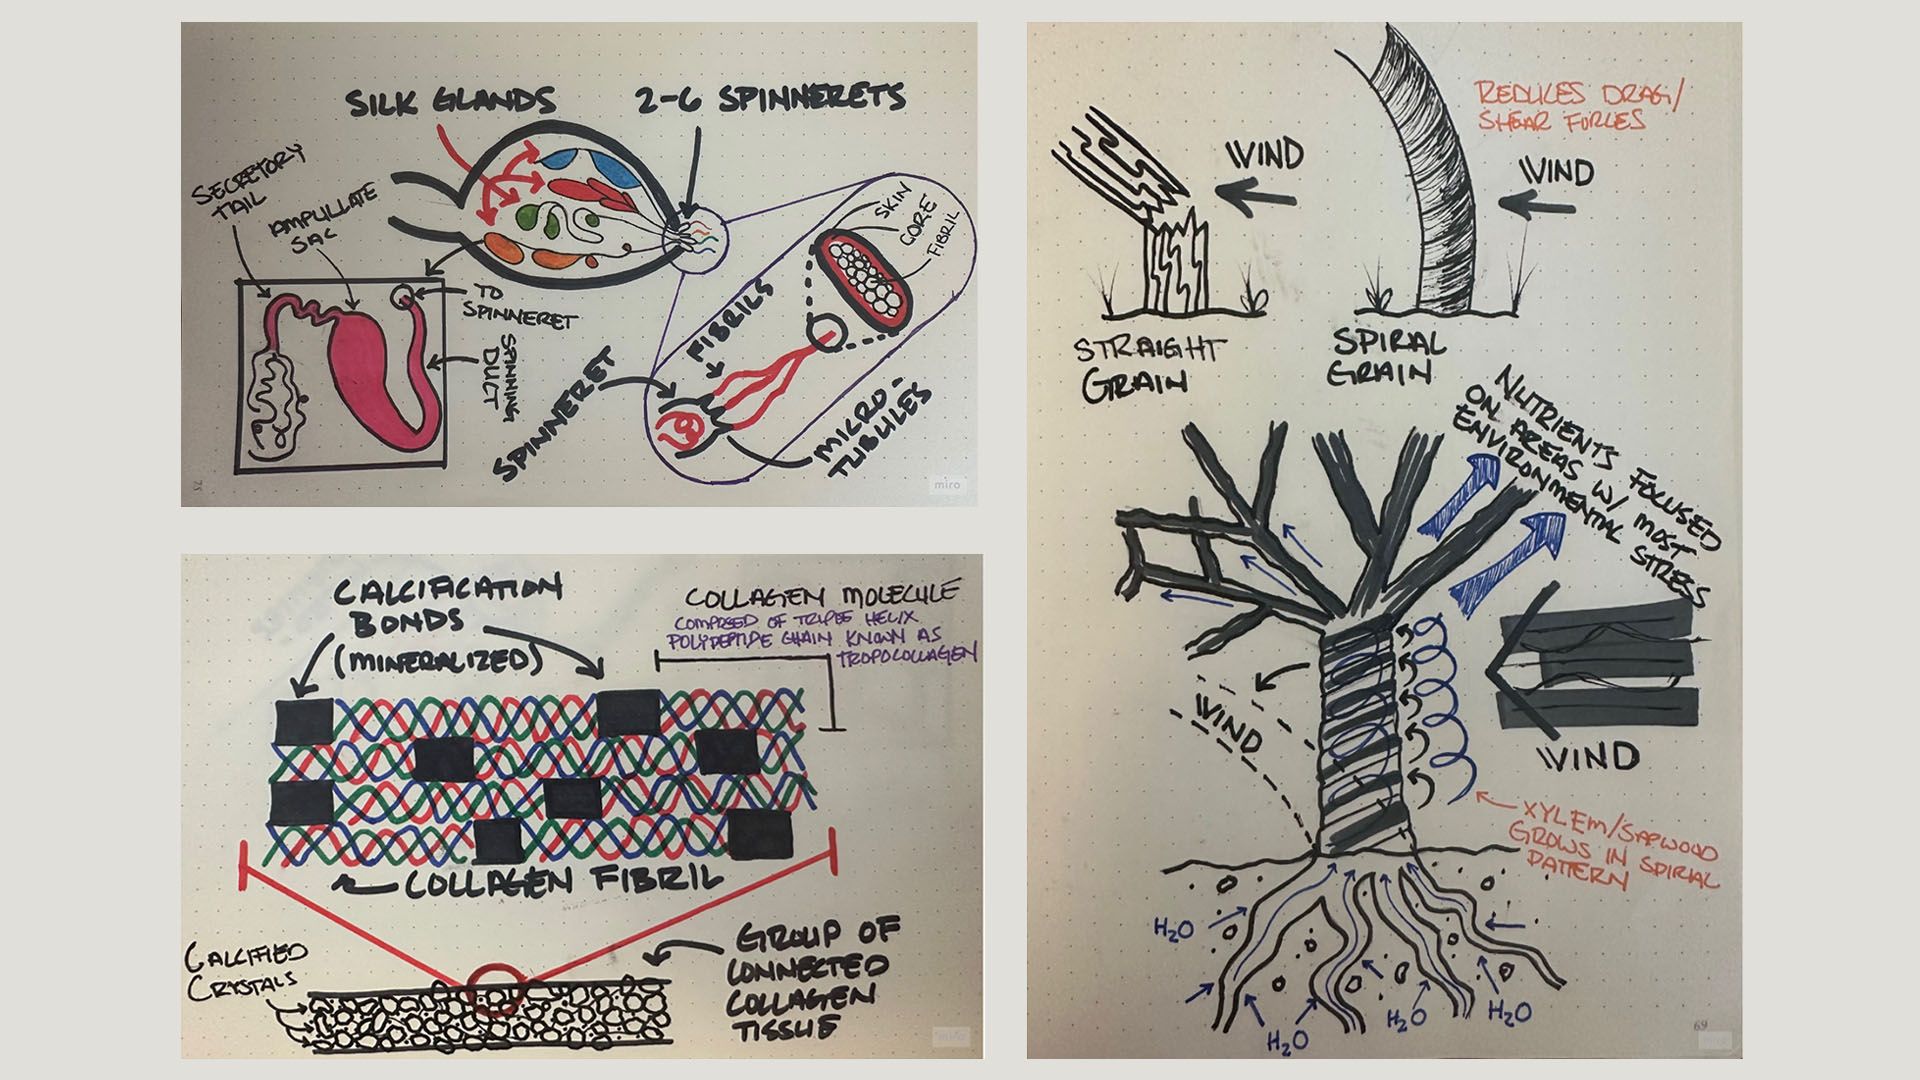 SILK GLANDS
2-6 SPINNERETS
SECRETORY
TAIL
AMPULLATE
SAC
TO
SPINNERET
SPINNING
DUCT
SPINNERET
FIBRILS
MICRO-
TUBULES
SKIN
CORE
FIBRIL
75
miro
CALCIFICATION
BONDS
(MINERALIZED)
COLLAGEN MOLECULE
COMPRISED OF TRIPLE HELIX
POLYPEPTIDE CHAIN KNOWN AS
TROPOCOLLAGEN
COLLAGEN FIBRIL
CALCIFIED
CRYSTALS
GROUP OF
CONNECTED
COLLAGEN
TISSUE
miro
REDUCES DRAG/
SHEAR FORCES
WIND
WIND
STRAIGHT
GRAIN
SPIRAL
GRAIN
NUTRIENTS FOCUSED
ON AREAS W/ MOST
ENVIRONMENTAL STRESS
WIND
WIND
XYLEM/SAPWOOD
GROWS IN SPIRIAL
PATTERN
H2O
H2O
H2O
H2O
69
miro